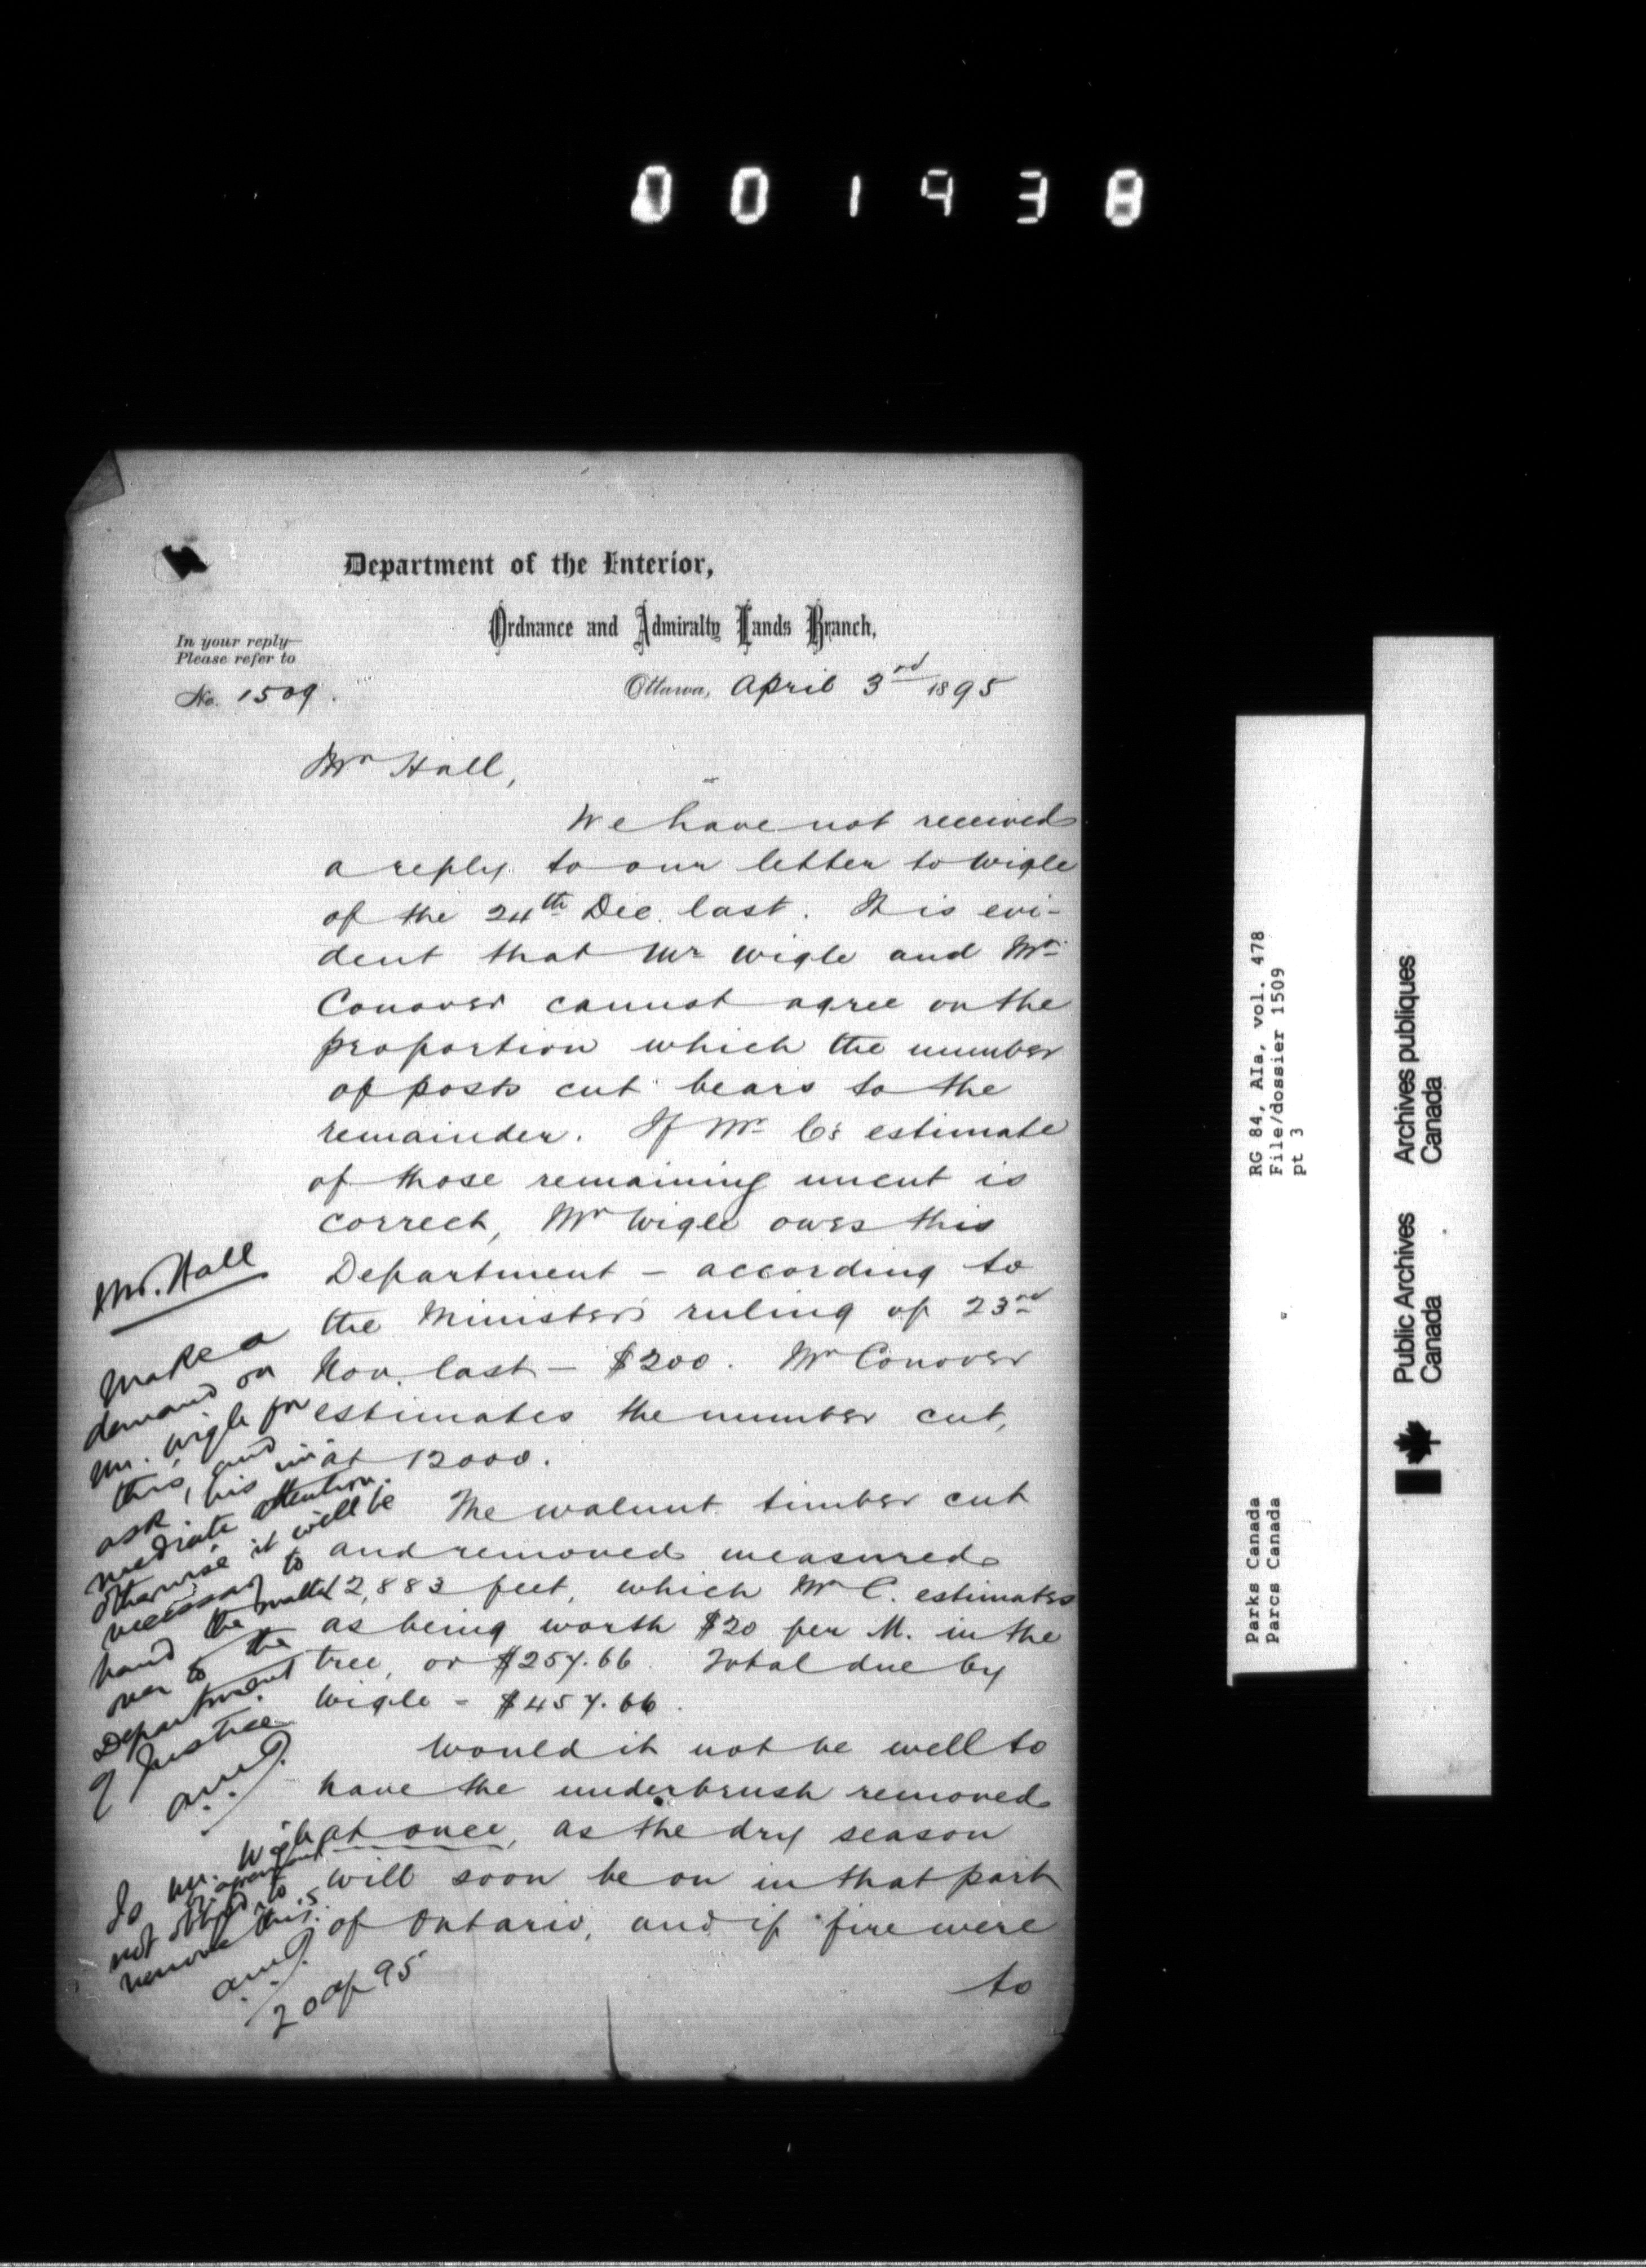 001938
Department of the Interior,
Ordnance and Admiralty Lands Branch,
In your reply
Please refer to
No. 1509.
Ottawa, April 3rd 1895
Mr Hall,
We have not received
a reply to our letter to Wigle
of the 24th Dec. last. It is evi-
dent that Mr Wigle and Mr
Conover cannot agree on the
proportion which the number
of posts cut bears to the
remainder. If Mr C's estimate
of those remaining uncut is
correct, Mr Wigle owes this
Department - according to
the Minister's ruling of 23rd
Nov. last - $200. Mr Conover
estimates the number cut,
at 12000.
The walnut timber cut
and removed measured
12,883 feet, which Mr C. estimates
as being worth $20 per M. in the
tree, or $257.66. Total due by
Wigle - $457.66.
Would it not be well to
have the underbrush removed
at once, as the dry season
will soon be on in that part
of Ontario, and if fire were
to
Mr. Hall
Make a
demand on
Mr. Wigle for
this, and
ask his im
mediate attention.
Otherwise it will be
necessary to
hand the matter
over to the
Department
of Justice
Is Mr. Wigle
not obliged by agreement to
remove this?
20 Ap 95
RG 84, A1a, vol. 478
File/dossier 1509
pt 3
Parks Canada
Parcs Canada
Public Archives
Canada
Archives publiques
Canada